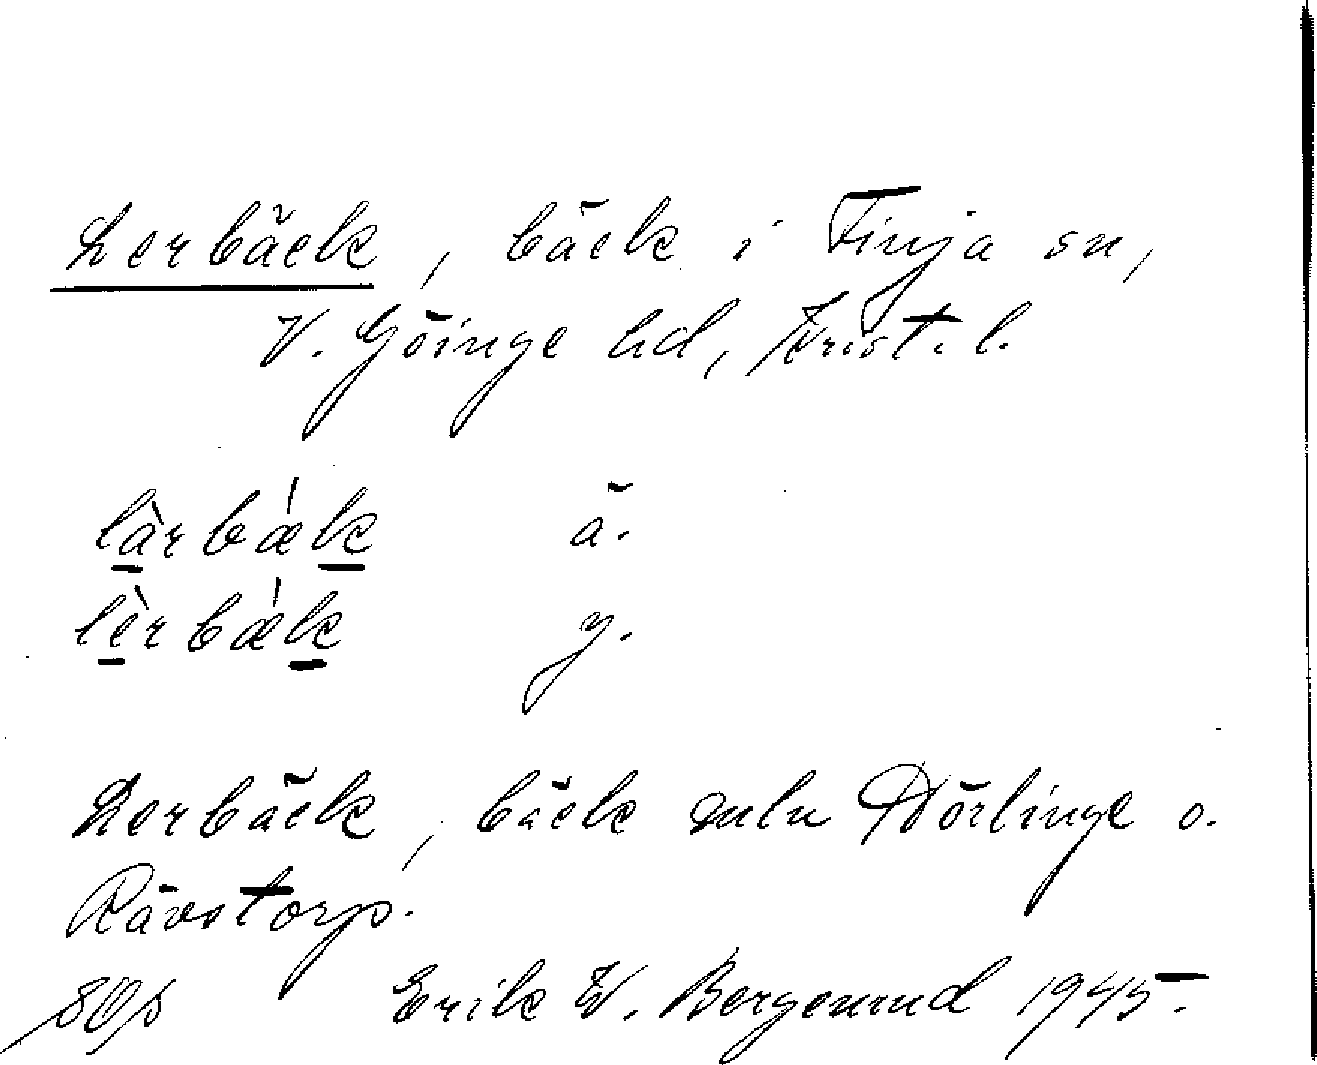 Lerbäck, bäck i Finja sn,
V. Göinge hd, Krist. l.
làrbæ̍k ä.
lèrbæ̍k y.
Lerbäck, bäck mln Dörlinge o.
Rävstorp.
Erik W. Bergenund 1945.